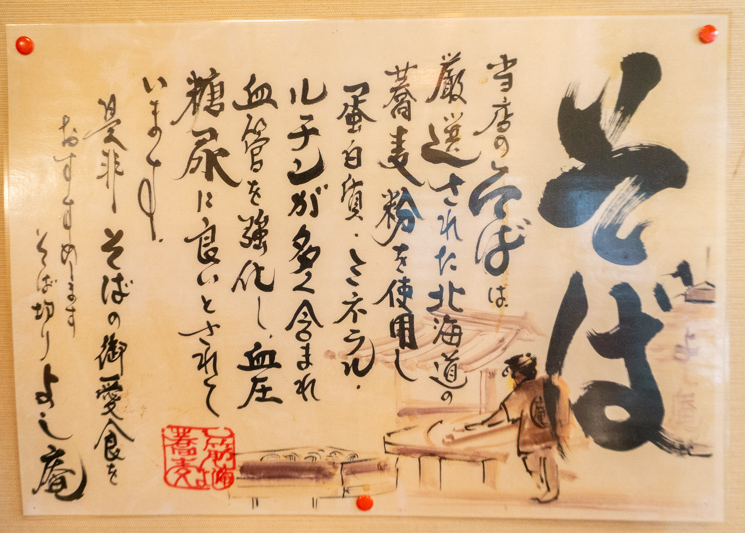 そば
当店のそばは
厳選された北海道の
蕎麦粉を使用し
蛋白質・ミネラル・
ルチンが多く含まれ
血管を強化し、血圧
糖尿に良いとされて
います。
是非そばの御愛食を
おすすめします
そば切り よし庵
蕎麦